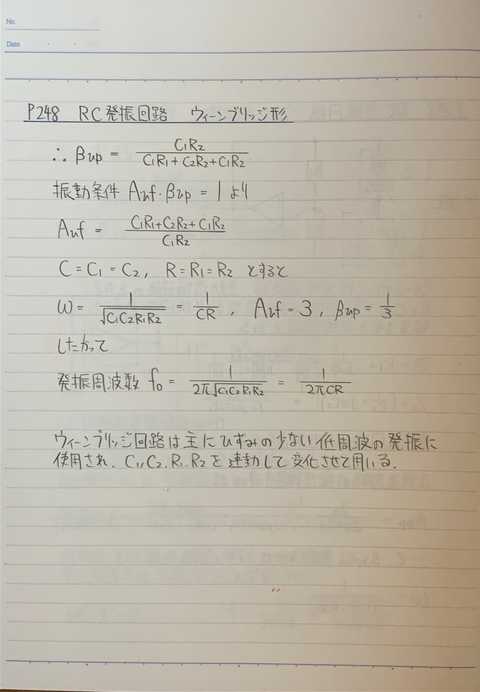 No.
Date
P248 RC発振回路 ウィーンブリッジ形
∴ βvp = C₁R₂ / (C₁R₁ + C₂R₂ + C₁R₂)
振動条件 Avf・βvp = 1 より
Avf = (C₁R₁+C₂R₂+C₁R₂) / C₁R₂
C = C₁ = C₂, R = R₁ = R₂ とすると
ω = 1/√(C₁C₂R₁R₂) = 1/CR , Avf = 3 , βvp = 1/3
したがって
発振周波数 f₀ = 1/(2π√(C₁C₂R₁R₂)) = 1/(2πCR)
ウィーンブリッジ回路は主にひずみの少ない低周波の発振に
使用され、C₁, C₂, R₁, R₂を連動して変化させて用いる.